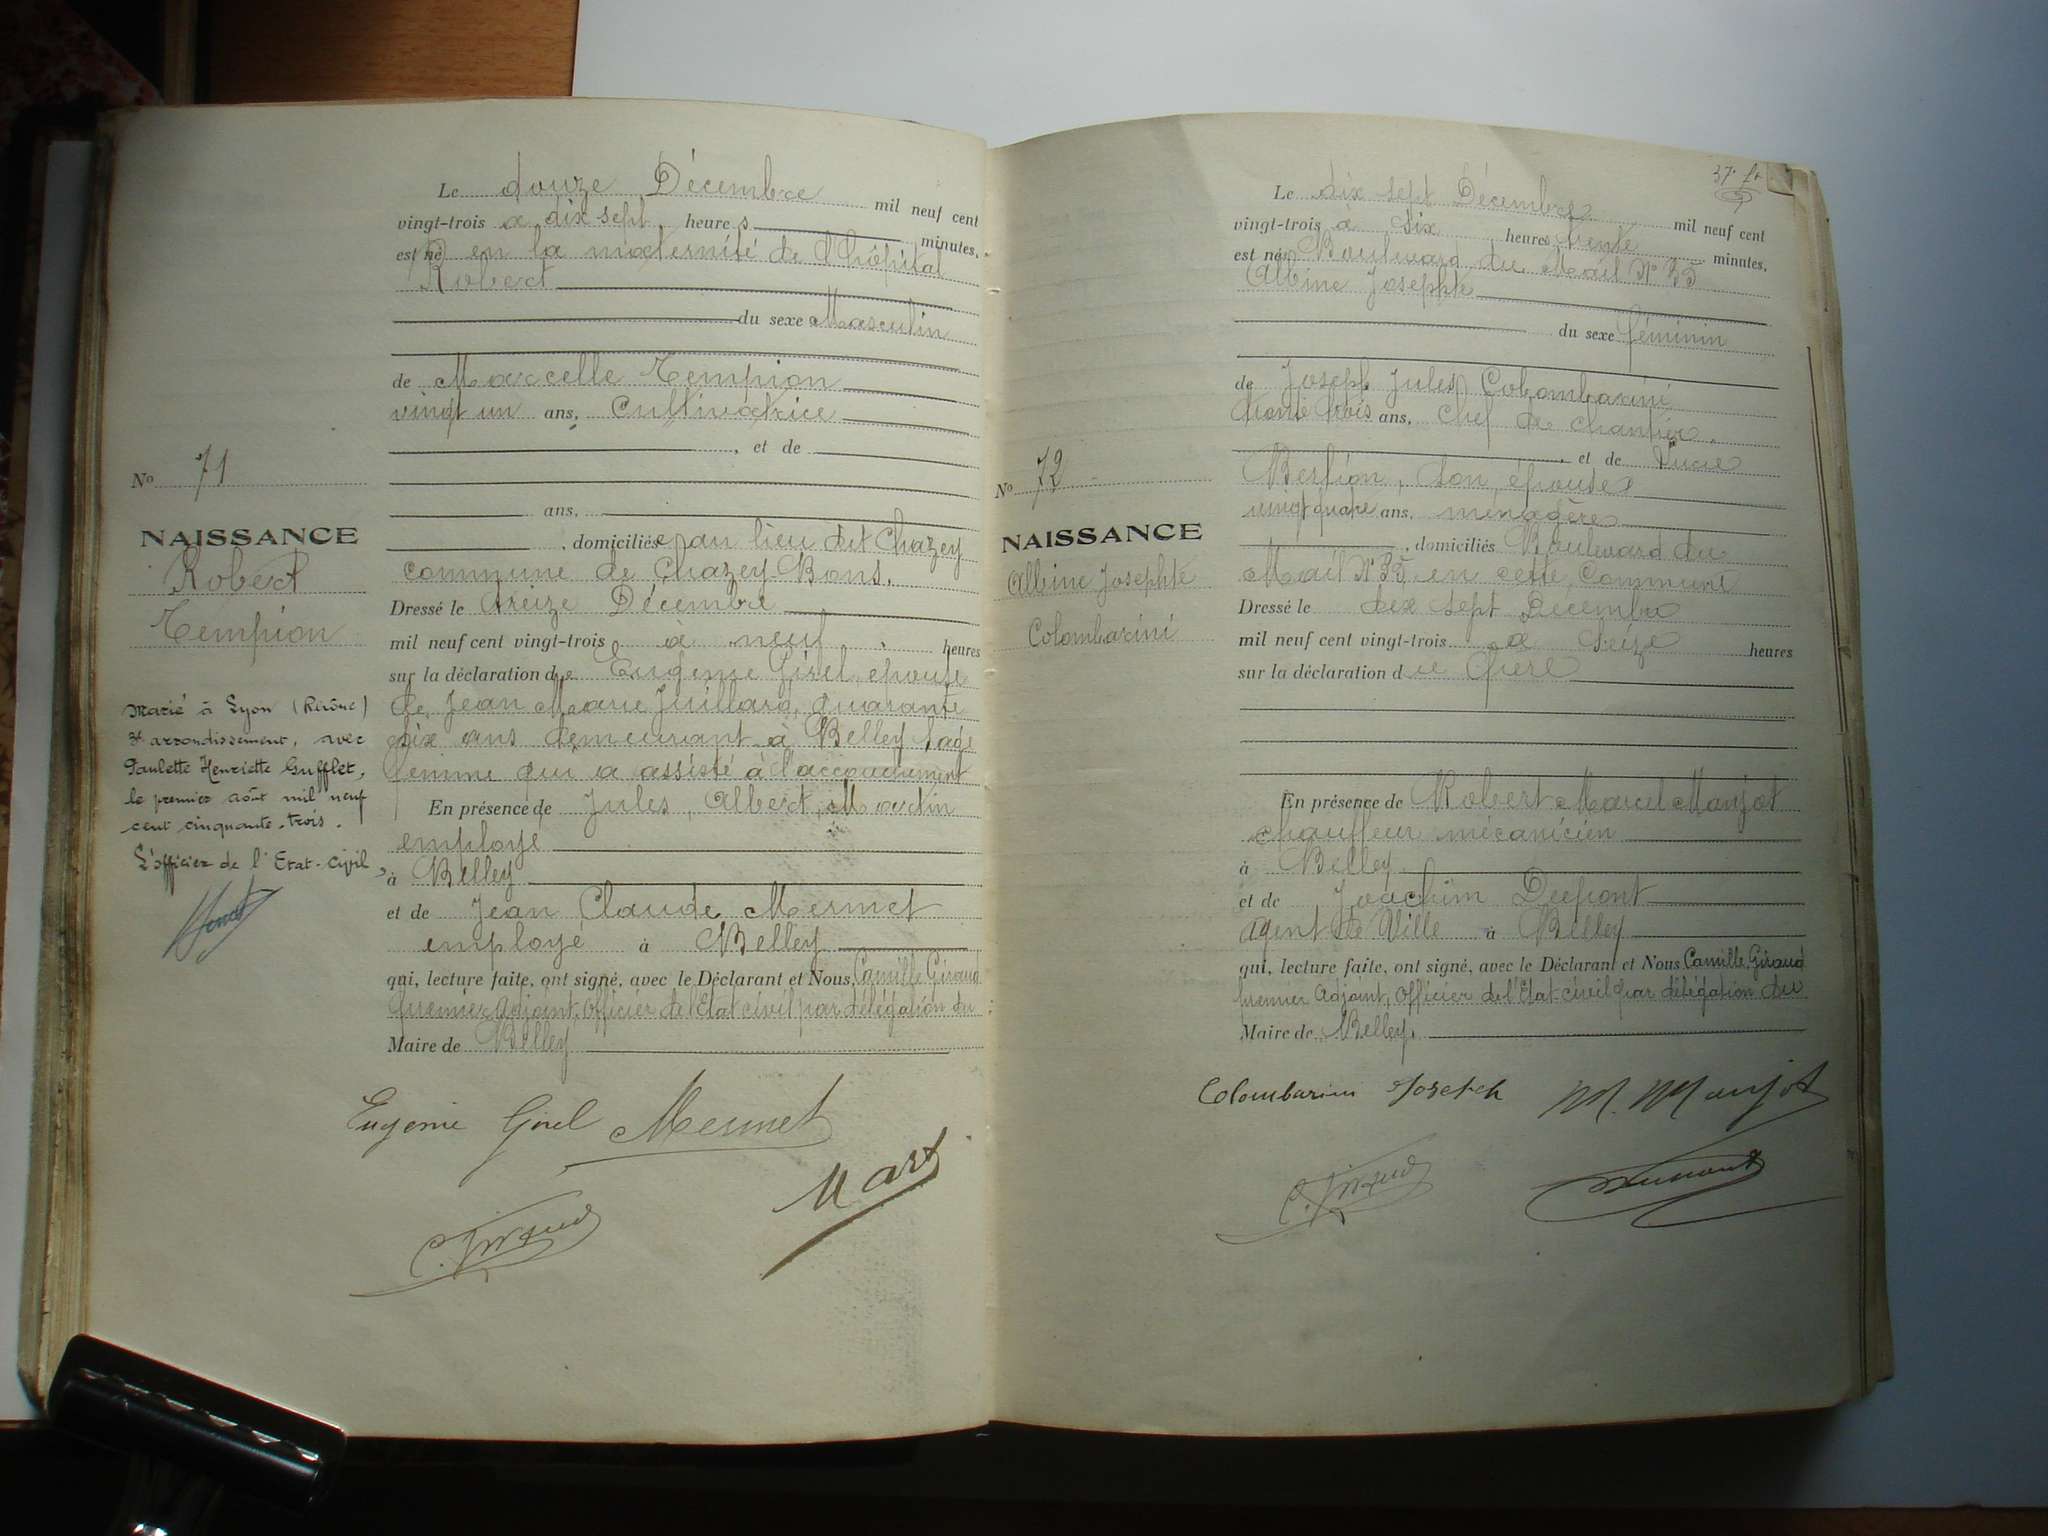 Le douze Décembre mil neuf cent
vingt-trois à dix sept heures minutes,
est né en la maternité de l'hôpital
Robert
du sexe Masculin
de Marcelle Tempion
vingt un ans, Cultivatrice
, et de
ans,
, domiciliée au lieu dit Chazey
commune de Chazey-Bons.
Dressé le treize Décembre
mil neuf cent vingt-trois à neuf heures
sur la déclaration de Eugénie Girel, épouse
de Jean Marie Juillard, quarante
six ans demeurant à Belley sage
femme qui a assisté à l'accouchement
En présence de Jules, Albert, Martin
employé
à Belley
et de Jean Claude Mermet
employé à Belley
qui, lecture faite, ont signé, avec le Déclarant et Nous, Camille Giraud
premier Adjoint, Officier de l'Etat civil par délégation du
Maire de Belley
Eugénie Girel Mermet
Mart
C. Giraud
No 71
NAISSANCE
Robert
Tempion
Marié à Lyon (Rhône)
3e arrondissement, avec
Paulette Henriette Gufflet,
le premier août mil neuf
cent cinquante-trois.
L'officier de l'Etat-civil,
37e
Le dix sept Décembre mil neuf cent
vingt-trois à six heures trente minutes,
est née Boulevard du Mail No 35
Albine Josephte
du sexe féminin
de Joseph Jules Colombarini
trente trois ans, Chef de chantier,
, et de Lucie
Berlion, son épouse
vingt quatre ans, ménagère
, domiciliés Boulevard du
Mail No 35 en cette Commune
Dressé le dix sept Décembre
mil neuf cent vingt-trois à seize heures
sur la déclaration du Père
En présence de Robert Marcel Manjot
chauffeur mécanicien
à Belley
et de Joachim Dupont
Agent de Ville à Belley
qui, lecture faite, ont signé, avec le Déclarant et Nous Camille Giraud
premier Adjoint, Officier de l'Etat-civil par délégation du
Maire de Belley.
Colombarini Joseph M. Manjot
C. Giraud
No 72
NAISSANCE
Albine Josephte
Colombarini